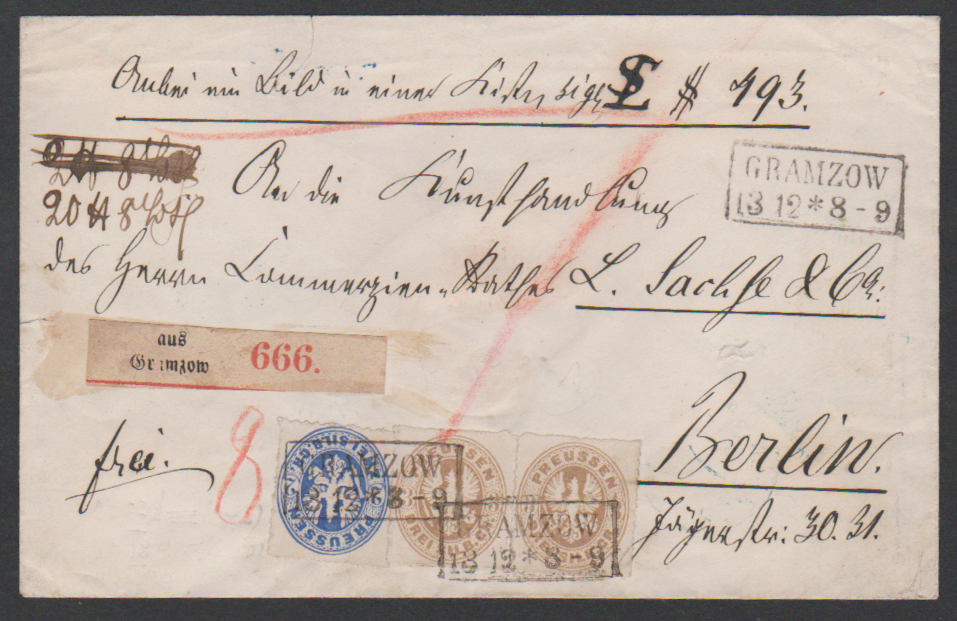 Anbei ein Bild in einer Kiste, sig. # 493.
GRAMZOW
13 12 * 8 - 9
20 # 8
An die Kunsthandlung
des Herrn Commerzien-Rathes L. Sachse & Co.
aus
Gramzow 666.
frei.
8
Berlin.
Jägerstr: 30. 31.
PREUSSEN ZWEI SILB. GR.
GRAMZOW
13 12 * 8 - 9
PREUSSEN DREI SILB. GR.
AMZOW
13 12 * 8 - 9
PREUSSEN